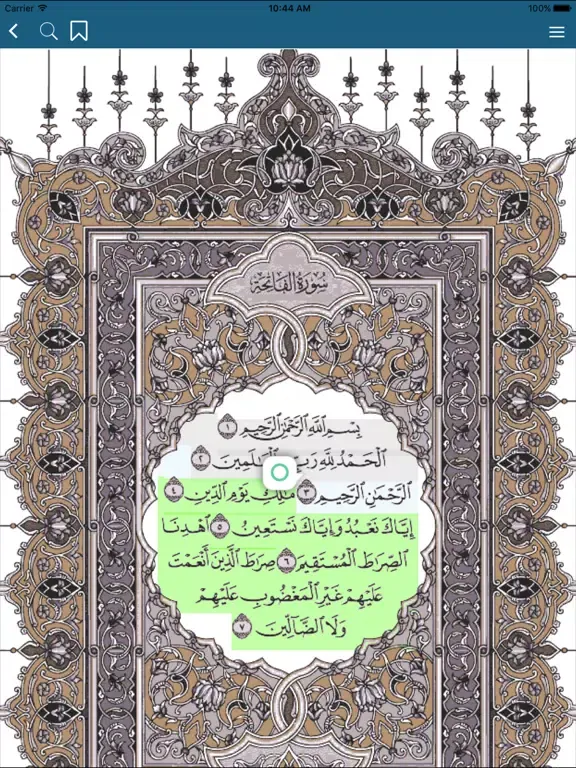 Carrier 10:44 AM 100%
سُورَةُ الفَاتِحَةِ
بِسْمِ اللَّهِ الرَّحْمَٰنِ الرَّحِيمِ ١
الْحَمْدُ لِلَّهِ رَبِّ الْعَالَمِينَ ٢
الرَّحْمَٰنِ الرَّحِيمِ ٣ مَلِكِ يَوْمِ الدِّينِ ٤
إِيَّاكَ نَعْبُدُ وَإِيَّاكَ نَسْتَعِينُ ٥ اهْدِنَا
الصِّرَاطَ الْمُسْتَقِيمَ ٦ صِرَاطَ الَّذِينَ أَنْعَمْتَ
عَلَيْهِمْ غَيْرِ الْمَغْضُوبِ عَلَيْهِمْ
وَلَا الضَّالِّينَ ٧